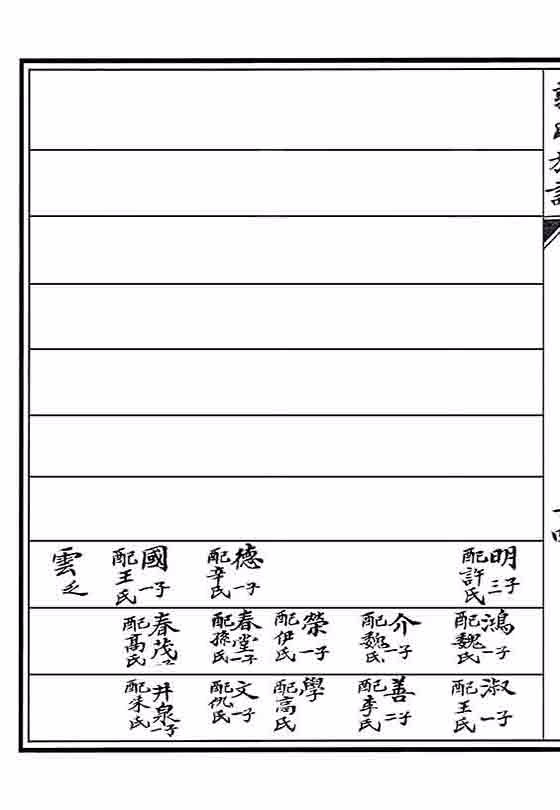 明三子
配許氏
德一子
配辛氏
國一子
配王氏
雲乏
鴻一子
配魏氏
介一子
配魏氏
榮一子
配伊氏
春堂一子
配孫氏
春茂一子
配高氏
淑一子
配王氏
善二子
配李氏
學
配高氏
文一子
配仇氏
井泉一子
配朱氏